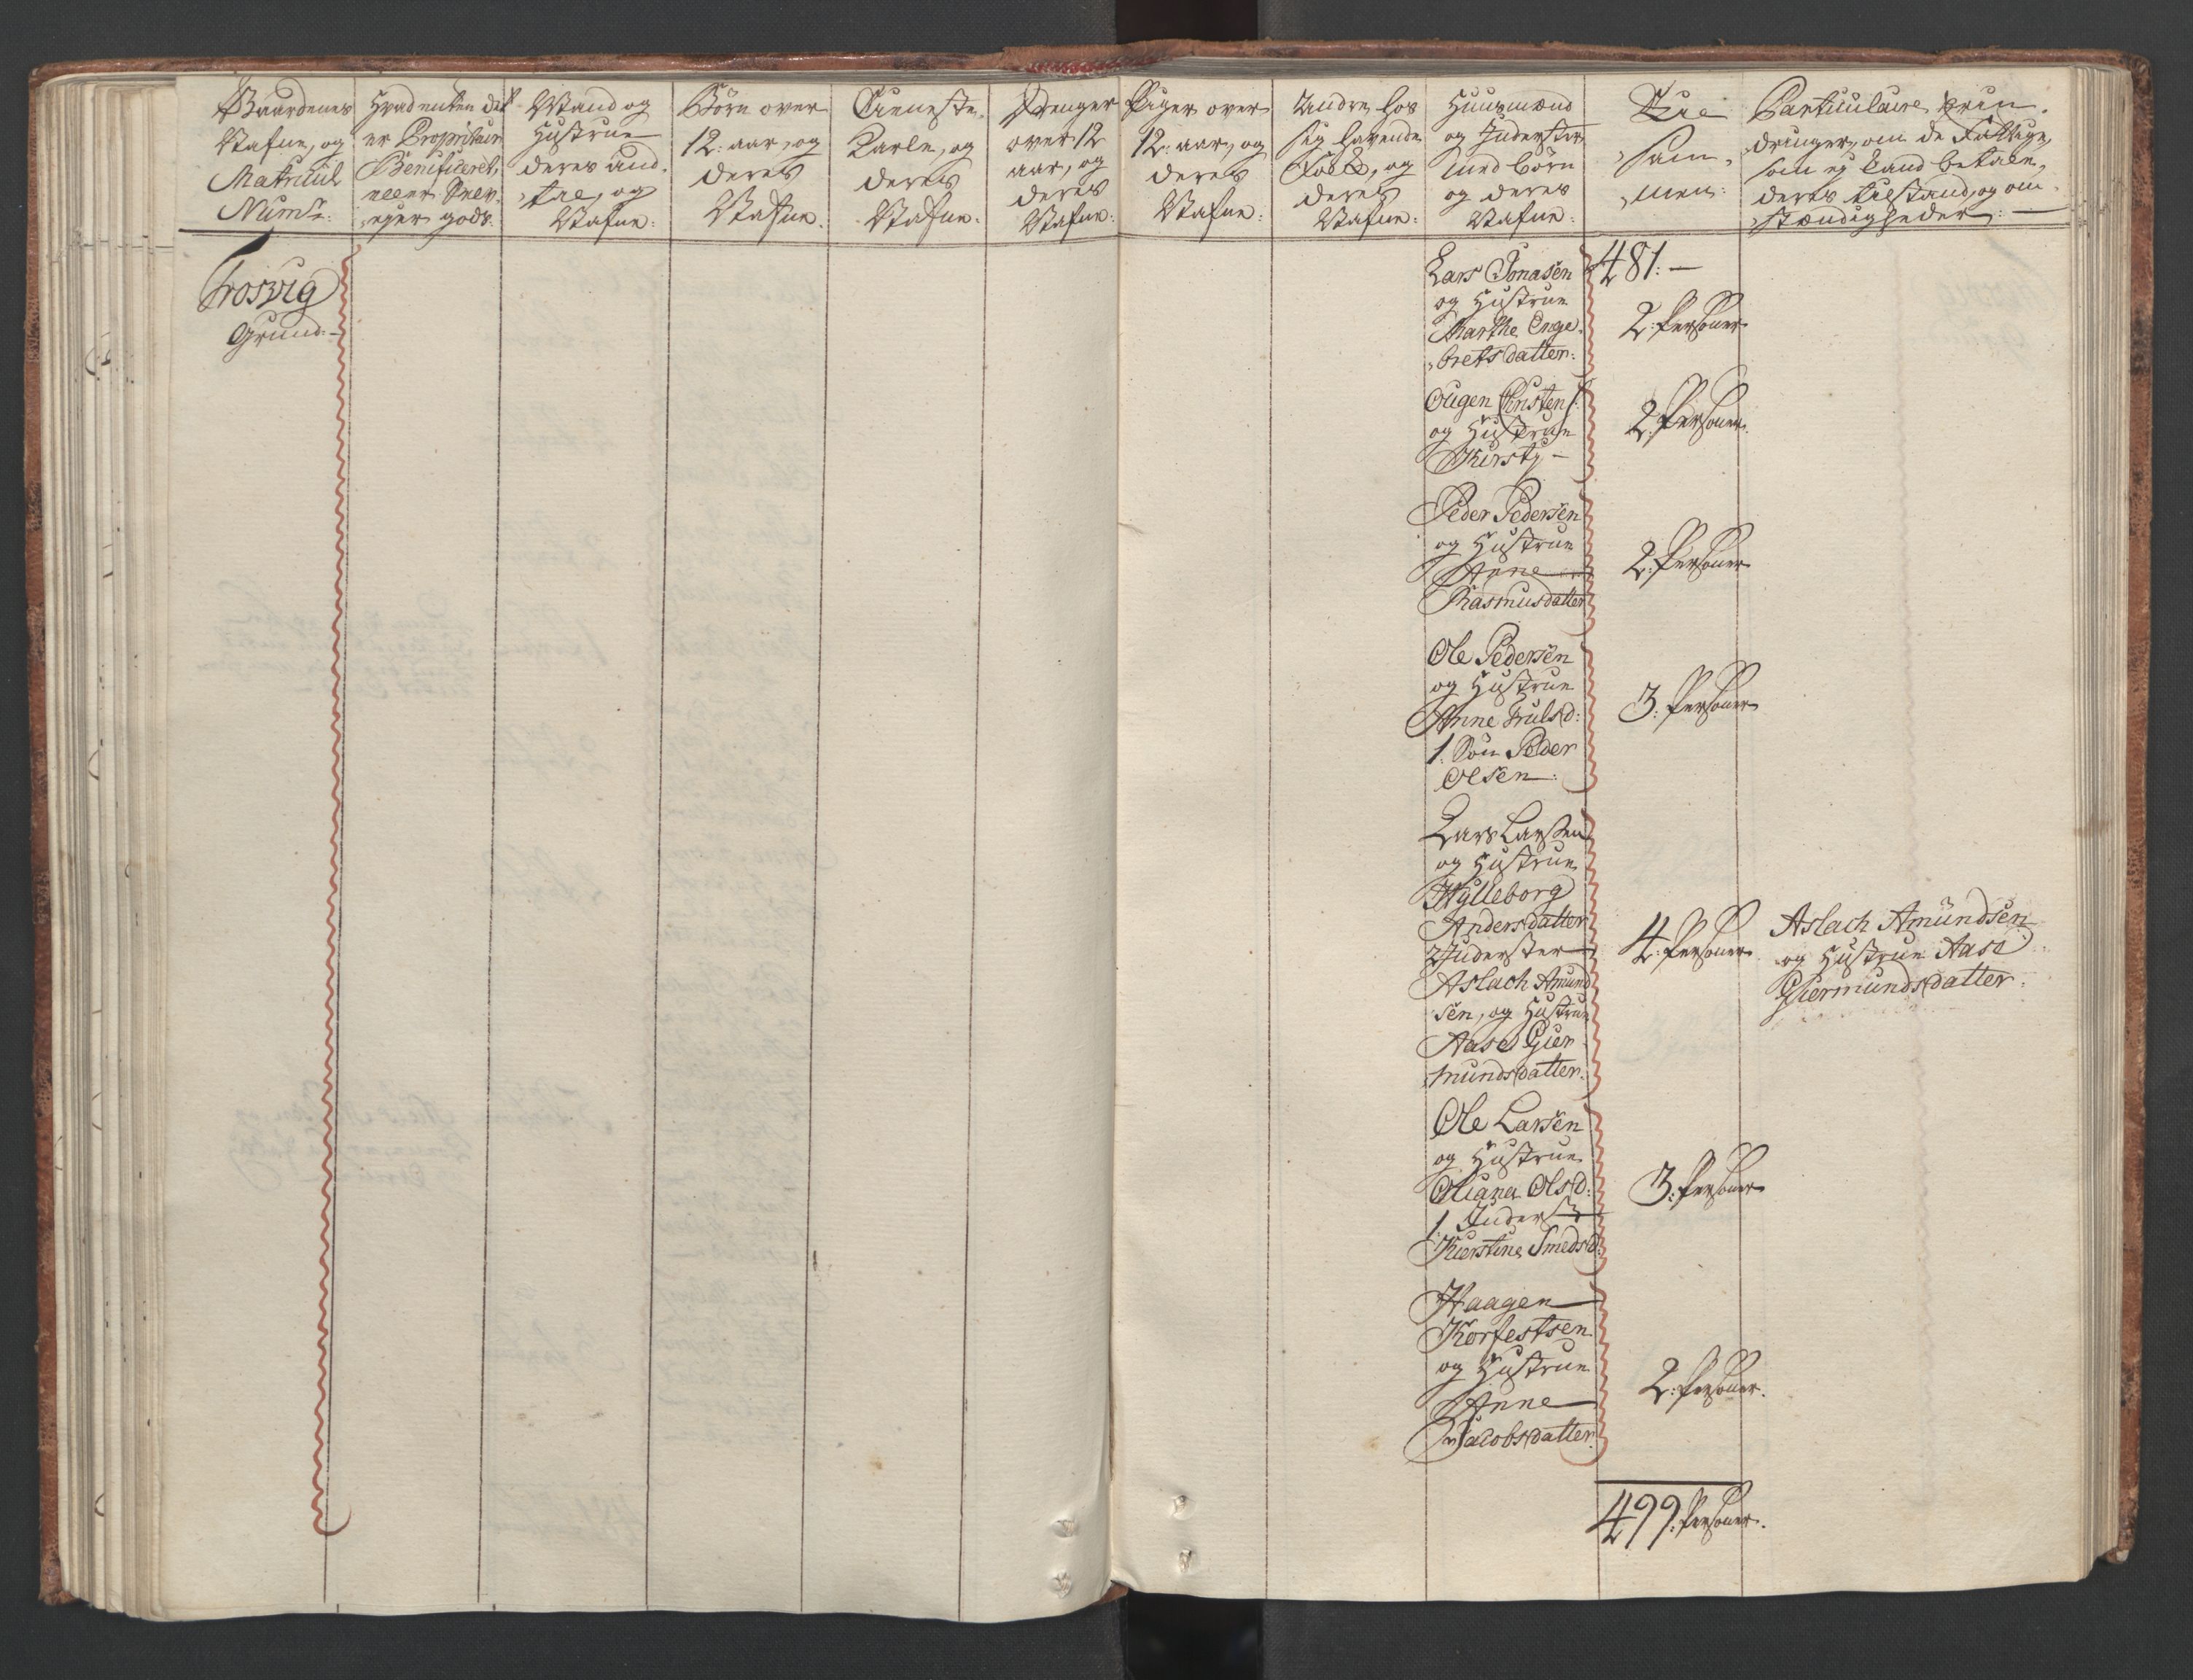 Gaardenes
Nafne, og
Matricul
Num:
Hvad enten det
er Propritair
Benificeret,
eller Selv-
ejer gods.
Mand og
Hustrue
deres and-
tal, og
Nafne:
Børn over
12: aar, og
deres
Nafne.
Tieneste
Karle, og
deres
Nafne.
Drenger
over 12
aar, og
deres
Nafne:
Piger over
12: aar, og
deres
Nafne:
Andre hos
sig havende
Folk, og
deres
Nafne:
Huusmænd
og Inderster
med børn
og deres
Nafne:
Til
sam-
men:
Particulaire Erin-
dringer, om de Fattige,
som ej kand betale,
deres tilstand, og om-
stændigheder: —
Trosvig
Grund:
Lars Jonasen
og Hustrue
Marthe Enge-
bretsdatter:
481: —
2: Personer
Ougen Christens:
og Hustrue
Kirsty —
2: Personer.
Peder Pedersen
og Hustrue
Anne
Rasmusdatter
2: Personer
Ole Pedersen
og Hustrue
Anne Trulsd:
1. Søn Peder
Olsen:
3: Personer
Lars Larsen
og Hustrue
Hylleborg
Andersdatter
2 Inderster
Aslach Amund
sen, og Hustrue
Aase Gier
mundsdatter.
4: Personer.
Aslach Amundsen
og Hustrue Aase
Giermundsdatter.
Ole Larsen
og Hustrue
Oliana Olsd:
1 Inderst
Kierstine Smedsd:
3: Personer
Haagen
Korfestsen
og Hustrue
Anne
Jacobsdatter.
2: Personer.
499: Personer.